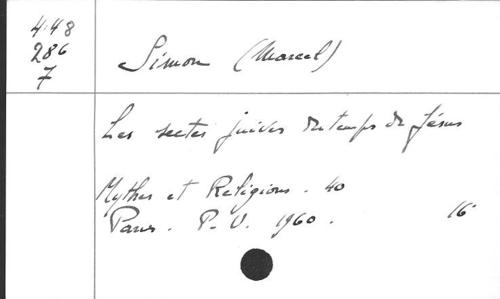 4.48
286
7
Simon (Marcel)
Les sectes juives du temps de Jésus
Mythes et Religions. 40
Paris. P.U. 1960.
16°